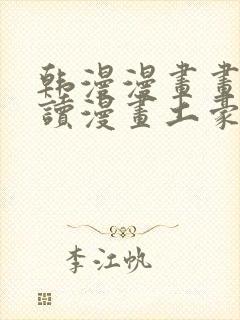 韩漫漫畫畫
讀漫畫土豪
李江帆